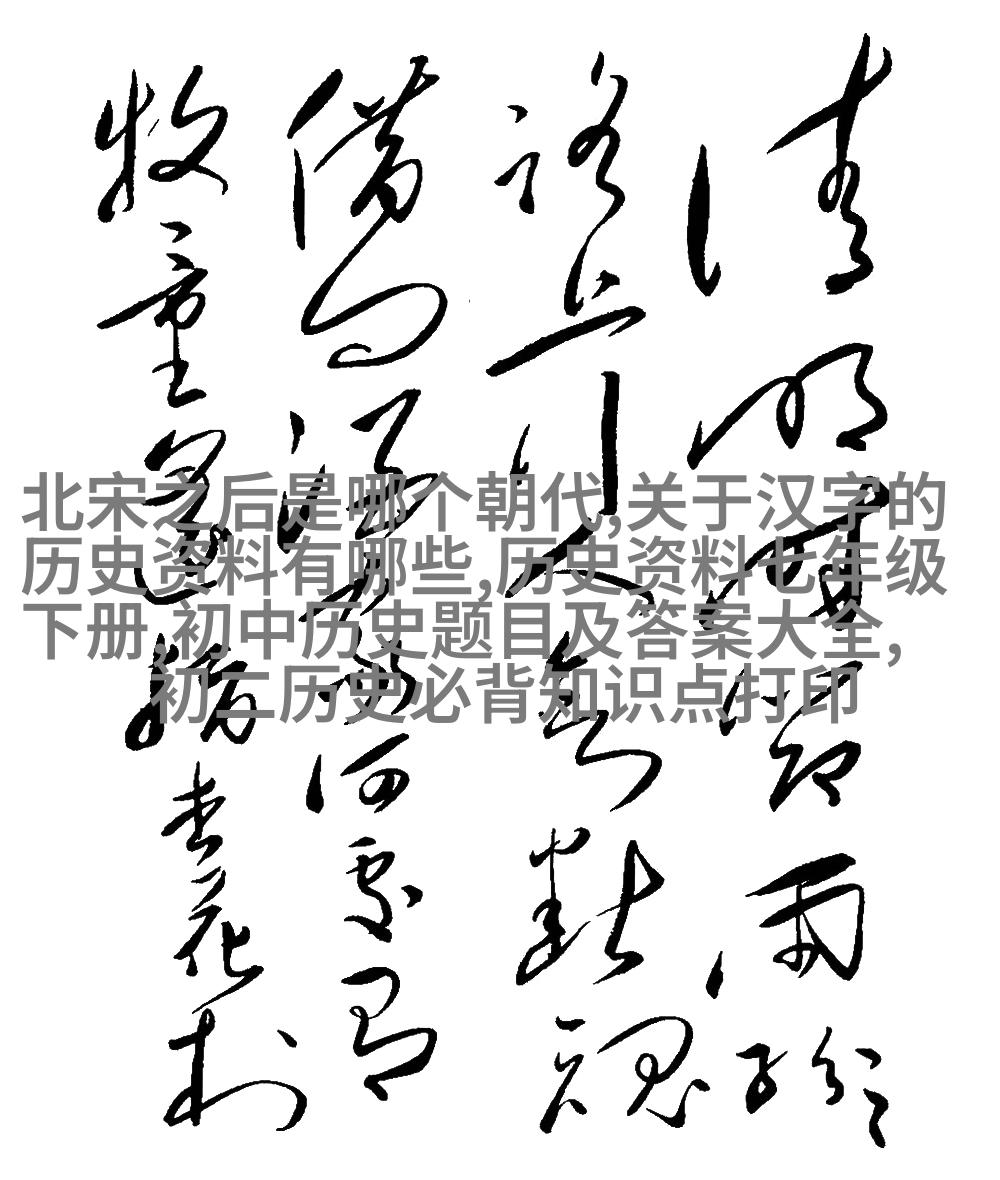 清明時節雨紛紛
路上行人欲斷魂
借問酒家何處有
牧童遙指杏花村
北宋之后是哪个朝代,关于汉字的
历史资料有哪些,历史资料七年级
下册,初中历史题目及答案大全,
初二历史必背知识点打印